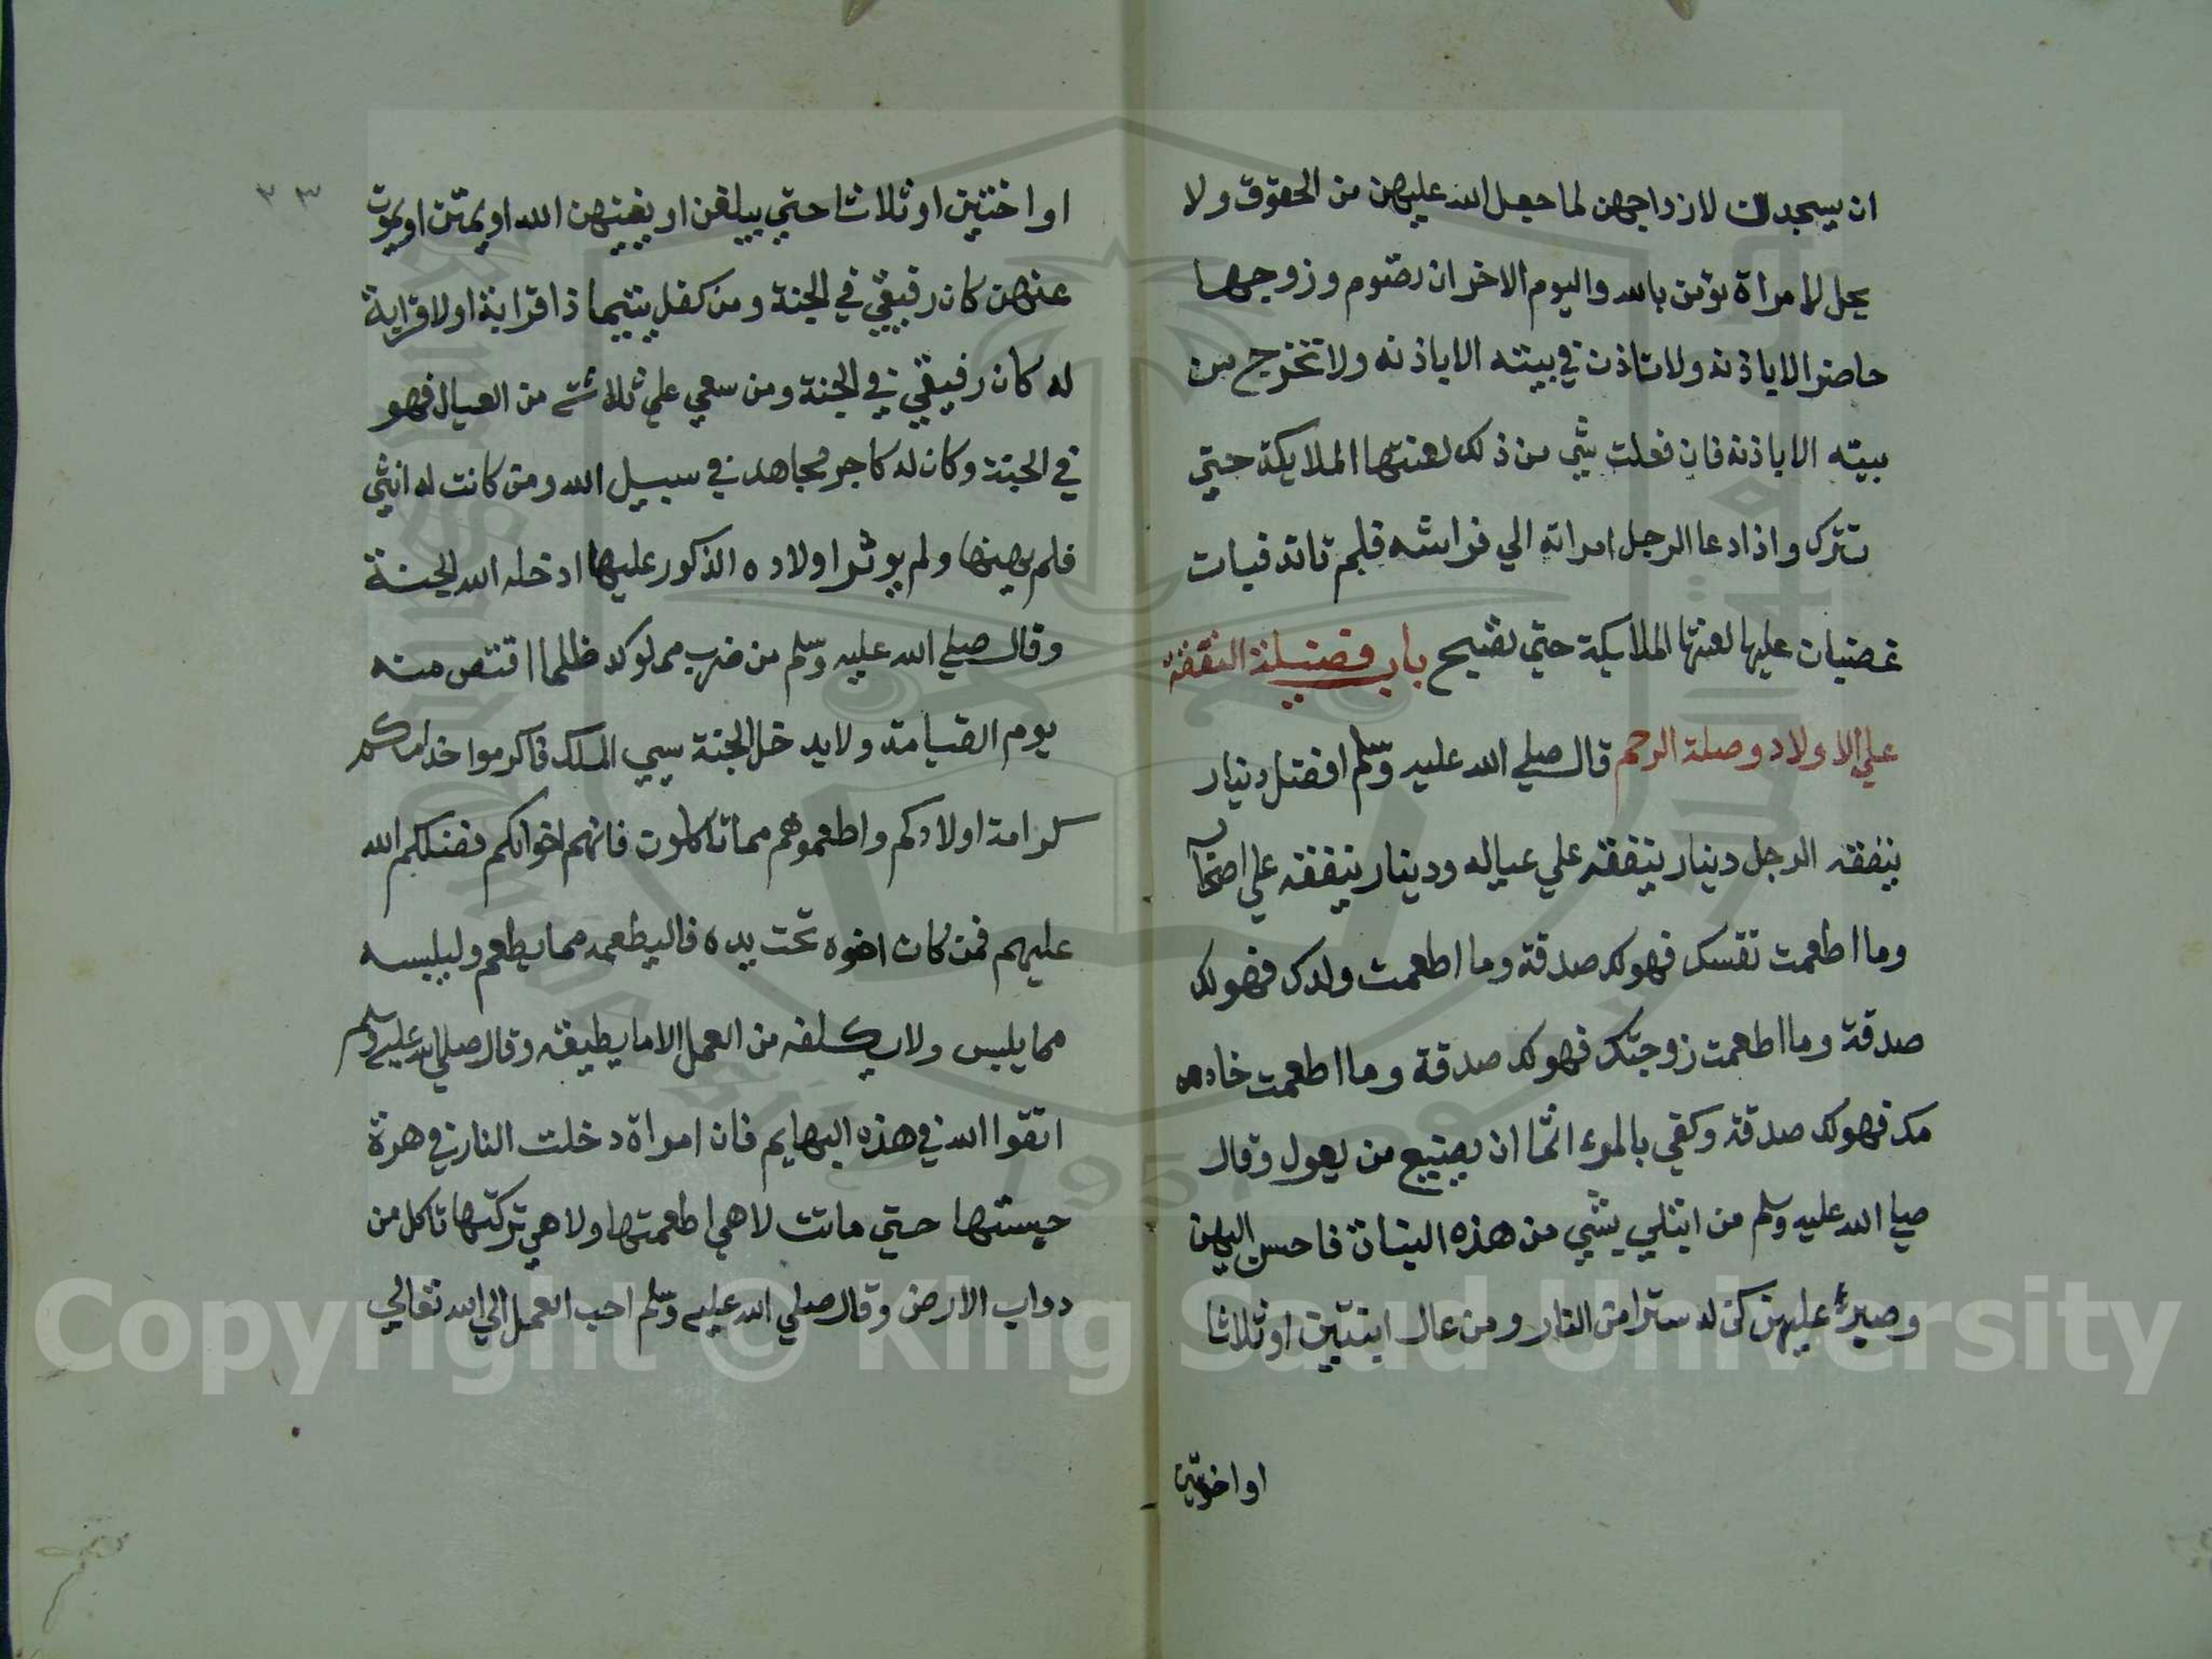 ان يسجدن لازواجهن لما جعل الله عليهن من الحقوق ولا
يحل لامراة تؤمن بالله واليوم الاخر ان تصوم وزوجها
حاضر الا باذنه ولا تاذن في بيته الا باذنه ولا تخرج من
بيته الا باذنه فان فعلت شي من ذلك لعنتها الملايكة حتي
تترك واذا دعا الرجل امراته الي فراشه فلم تاته فبات
غضبان عليها لعنتها الملايكة حتي تصبح باب فضيلة النفقة
علي الاولاد وصلة الرحم قال صلي الله عليه وسلم افضل دينار
ينفقه الرجل دينار ينفقه علي عياله ودينار ينفقه علي اصحاب
وما اطعمت نفسك فهو لك صدقة وما اطعمت ولدك فهو لك
صدقة وما اطعمت زوجتك فهو لك صدقة وما اطعمت خاد
مك فهو لك صدقة وكفي بالمرء اثما ان يضيع من يعول وقال
صلي الله عليه وسلم من ابتلي بشي من هذه البنات فاحسن اليهن
وصبر عليهن كن له سترا من النار ومن عال ابنتين او ثلاثا
او اختين
٣٣
او اختين او ثلاثا حتي يبلغن او يغنيهن الله او يمتن او يموت
عنهن كان رفيقي في الجنة ومن كفل يتيما ذا قرابة او لا قرابة
له كان رفيقي في الجنة ومن سعي علي ثلاثة من العيال فهو
في الجنة وكان له كاجر مجاهد في سبيل الله ومن كانت له انثي
فلم يهينها ولم يوثر اولاده الذكور عليها ادخله الله الجنة
وقال صلي الله عليه وسلم من ضرب مملوكه ظلما اقتص منه
يوم القيامة ولا يدخل الجنة سيي الملك فاكرموا خدامكم
كرامة اولادكم واطعموهم مما تاكلون فانهم اخوانكم فضلكم الله
عليهم فمن كان اخوه تحت يده فاليطعمه مما يطعم وليلبسه
مما يلبس ولا يكلفه من العمل الا ما يطيقه وقال صلي الله عليه وسلم
اتقوا الله في هذه البهايم فان امراة دخلت النار في هرة
حبستها حتي ماتت لا هي اطعمتها ولا هي تركتها تاكل من
دواب الارض وقال صلي الله عليه وسلم احب العمل الي الله تعالي
Copyright © King Saud University
1957